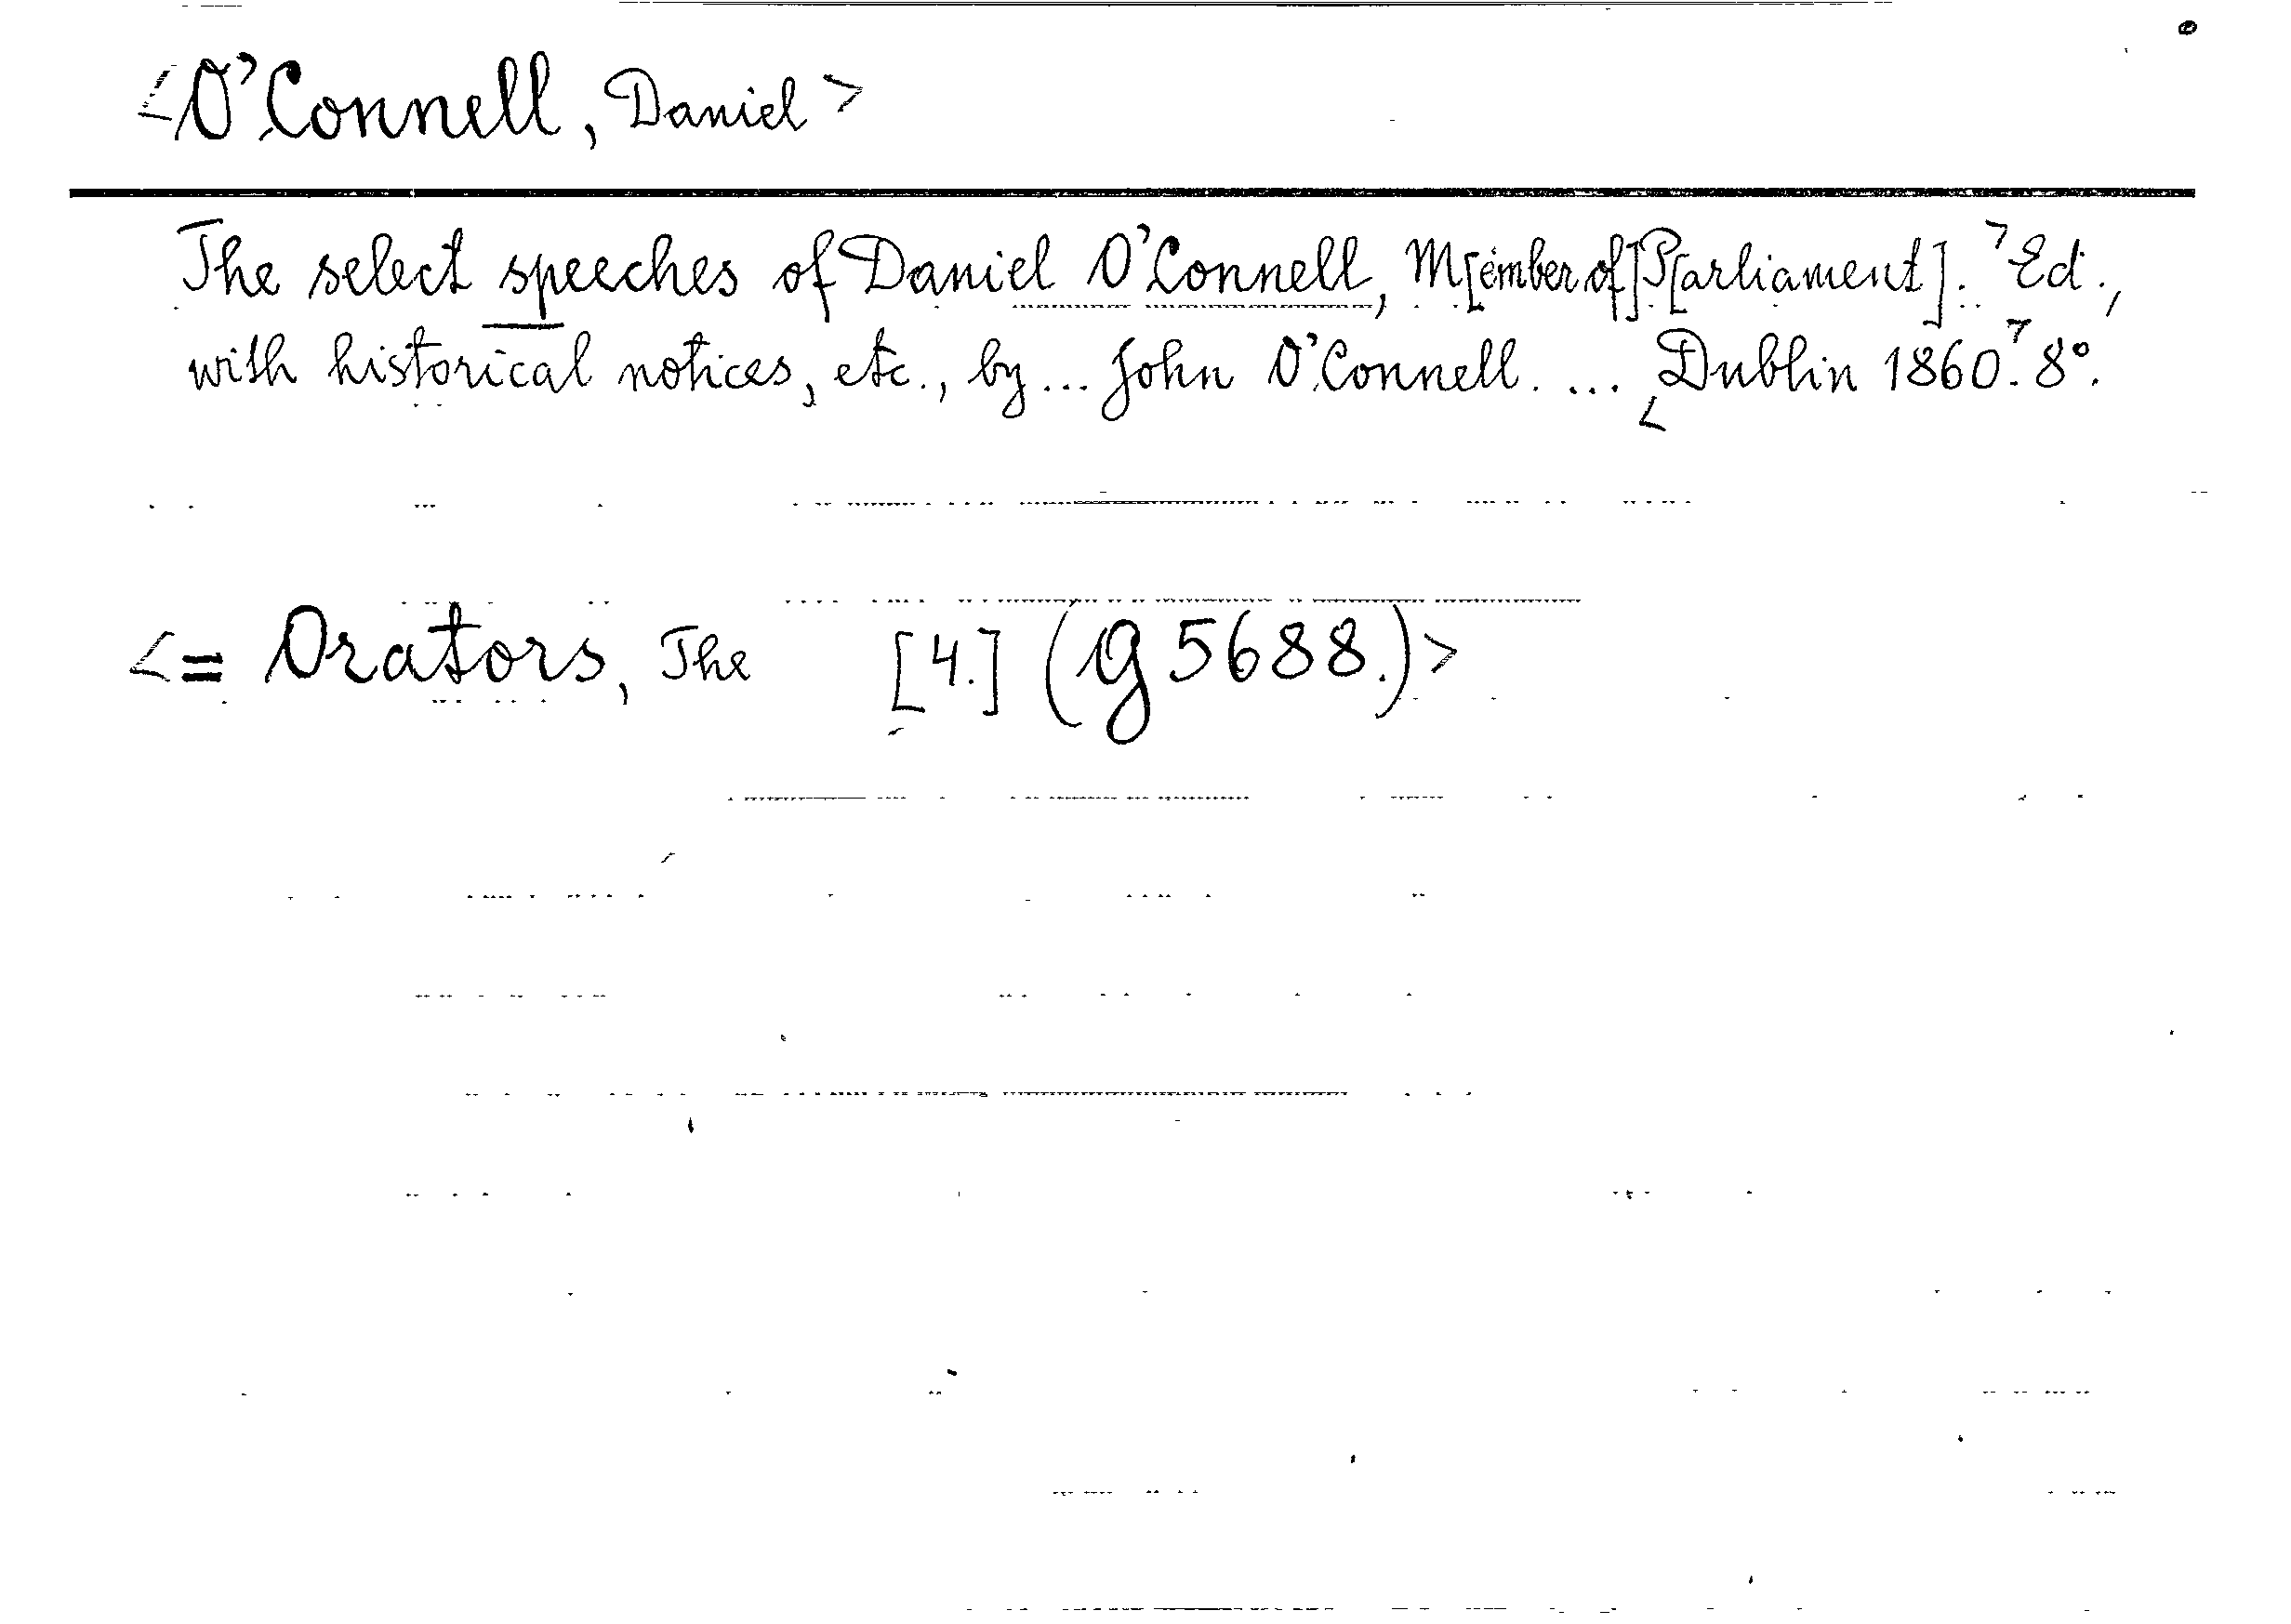 <O'Connell, Daniel>
The select speeches of Daniel O'Connell, M[ember of] P[arliament]. > Ed.,
with historical notices, etc., by ... John O'Connell. ... < Dublin 1860.> 8°.
<= Orators, The [4.] (g 5688.)>